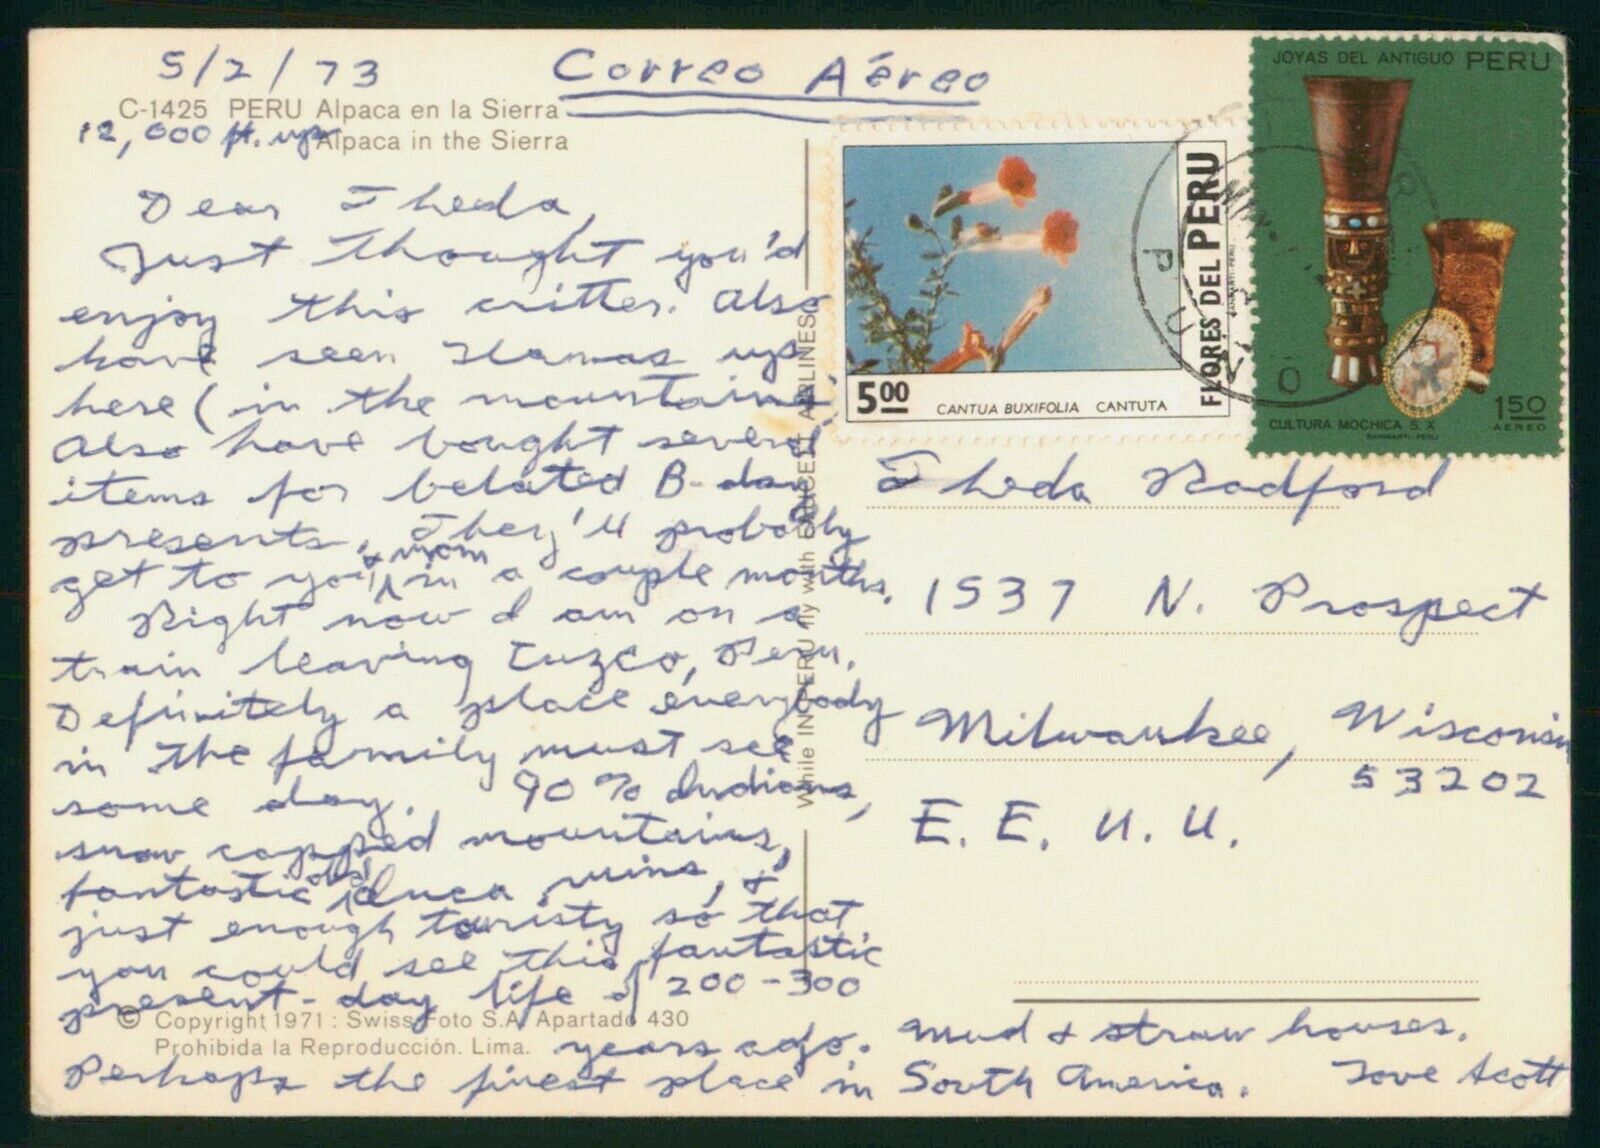 5/2/73
Correo Aéreo
C-1425 PERU Alpaca en la Sierra
12,000 ft. up
Alpaca in the Sierra
Dear Theda,
Just thought you'd
enjoy this critter. Also
have seen llamas up
here (in the mountains.
Also have bought several
items for belated B-day
presents. They'll probably
get to you & mom in a couple months.
Right now I am on a
train leaving Cuzco, Peru.
Definitely a place everybody
in the family must see
some day. 90% Indians,
snow capped mountains,
fantastic old Inca ruins, &
just enough touristy so that
you could see this fantastic
present-day life of 200-300
years ago. Mud & straw houses.
Perhaps the finest place in South America. Love Scott
© Copyright 1971: Swiss Foto S.A. Apartado 430
Prohibida la Reproducción. Lima.
While IN PERU fly with FAUCETT AIRLINES
FLORES DEL PERU
SANMARTI-PERU
5.00
CANTUA BUXIFOLIA CANTUTA
JOYAS DEL ANTIGUO PERU
CULTURA MOCHICA S. X
SANMARTI-PERU
1.50
AEREO
Theda Radford
1537 N. Prospect
Milwaukee, Wisconsin
53202
E.E.U.U.